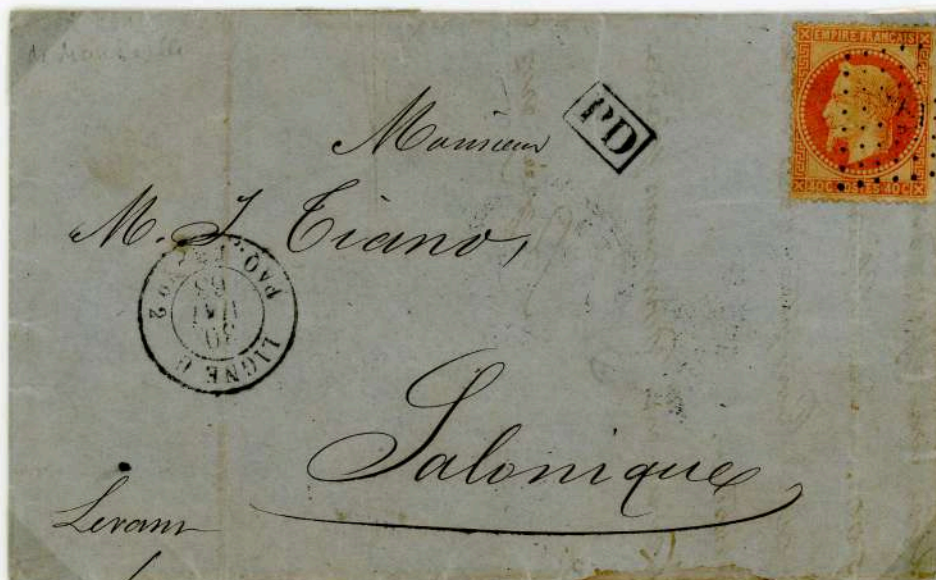 EMPIRE FRANÇAIS
40 C POSTES 40 C
PD
Monsieur
M. J. Tiano,
LIGNE
PAQ. FR. No 2
Salonique
Levant